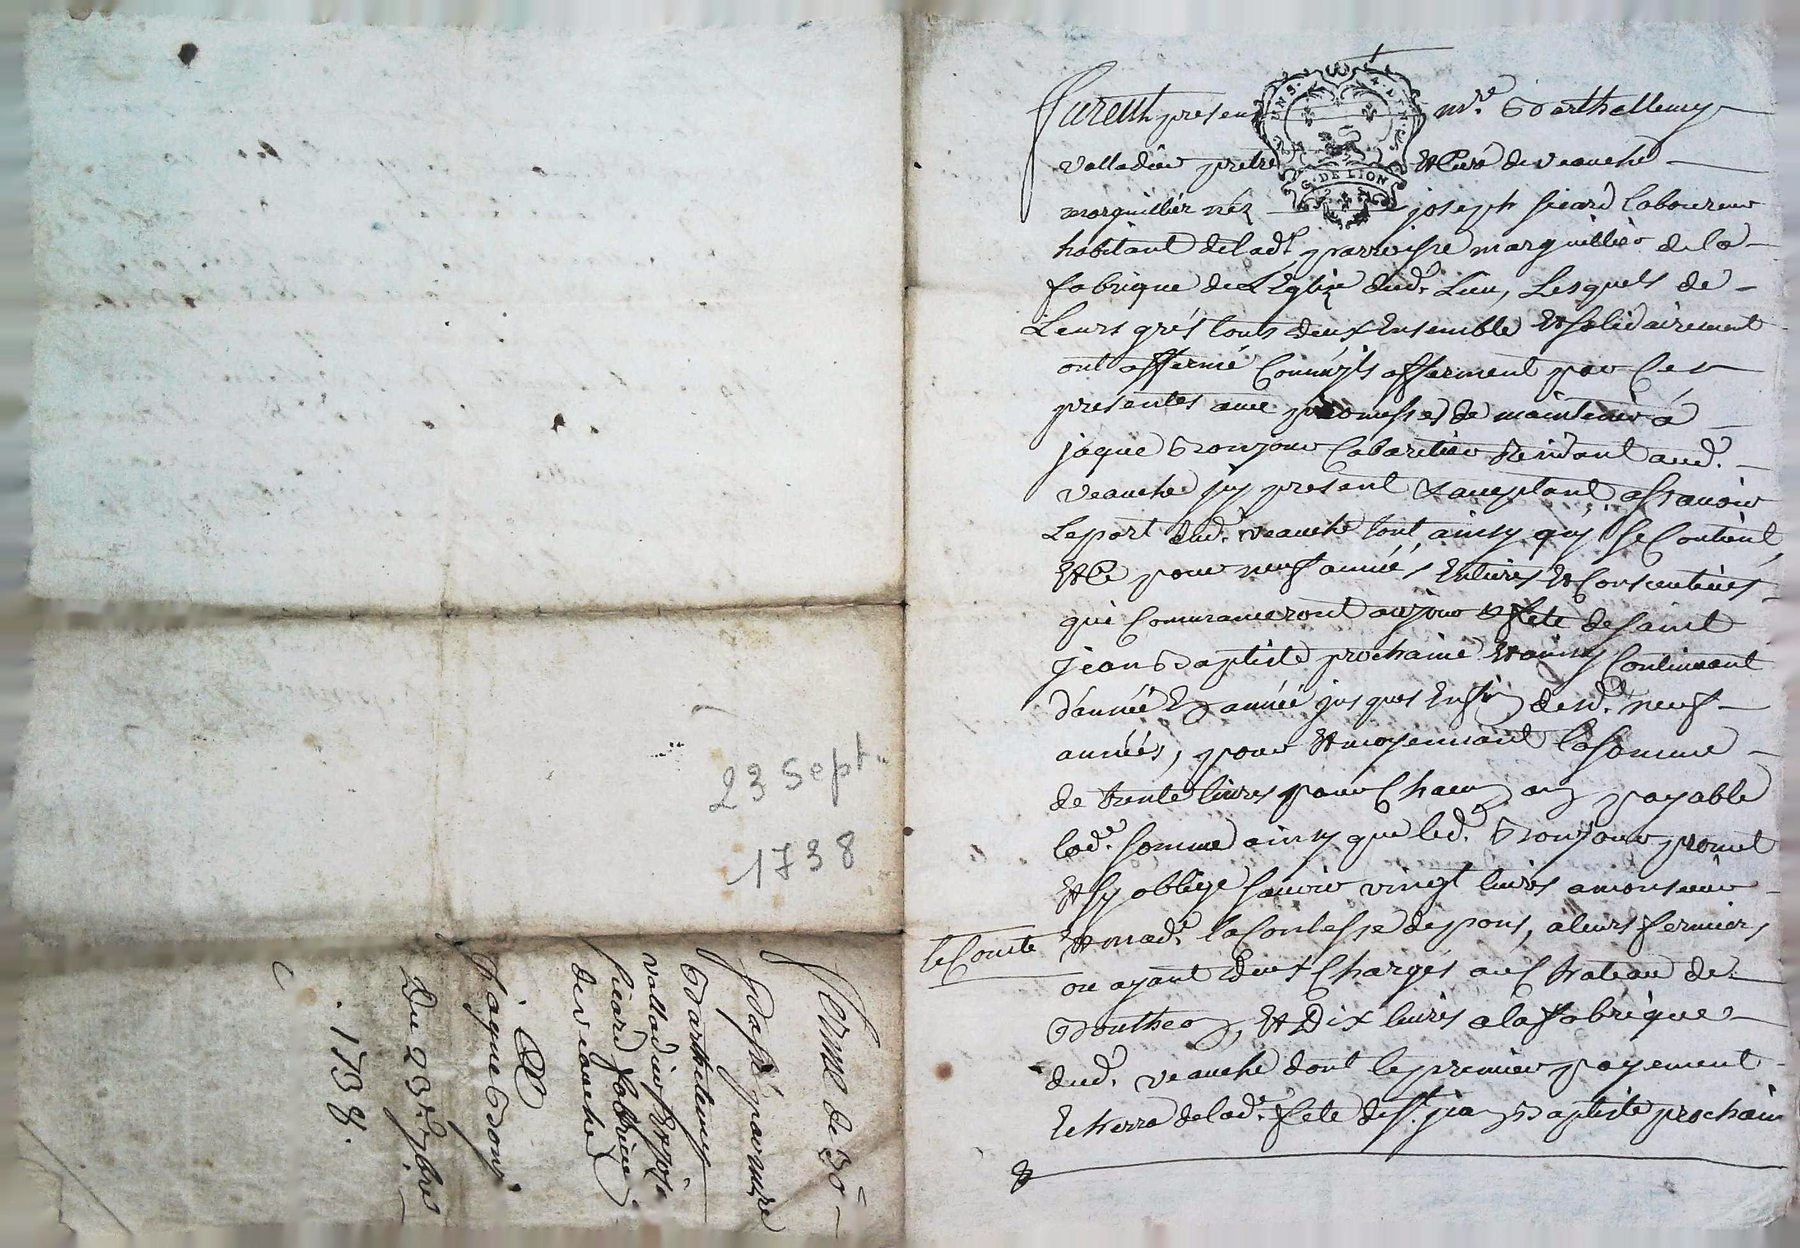 23 Sept.
1738
Ferme de 30 ₶
Passé par mre
Barthelemy
valladier & joseph
sicard fabricien
de veauche
A
Jaque Bonj.
Du 23e 7bre
. 1738.
GENS. ALEN.
G. DE LION
Furent presens mre. Barthellemy
valladier pretre & Curé de veauche
marguillier néz joseph sicard laboureur
habitant de lad.e parroisse marguillier de la
fabrique de L'Eglize dud. Lieu, Lesquels de
Leurs grés touts deux Ensemble Et solidairement
ont affermé Comm'ils afferment par Ces
presentes avec promesse de maintenir á
jaque Bonjour Cabaretier Residant aud.
veauche jcy present & acceptant, assavoir
Le port dud. veauche tout ainsy qu'il se Contient,
Et Ce pour neuf années Entieres Et Consecutives
qui Commanceront au jour & fete de saint
jean Baptiste prochaine Et ainsy Continuant
d'année En année jusques En fin desd. neuf
années, pour Et moyennant la somme
de trente livres pour Chacun an payable
lad.e somme ainsy que led. Bonjour promet
Et s'y oblige sçavoir vingt livres a monsieur
le Comte Et mad.e la Contesse de pons, a leurs fermiers
ou ayant d'eux Charges au Chateau de
Boutheon, Et Dix livres a la fabrique
dud. veauche dont le premier payement
Echerra de lad.e fete de St. jean Baptiste prochain